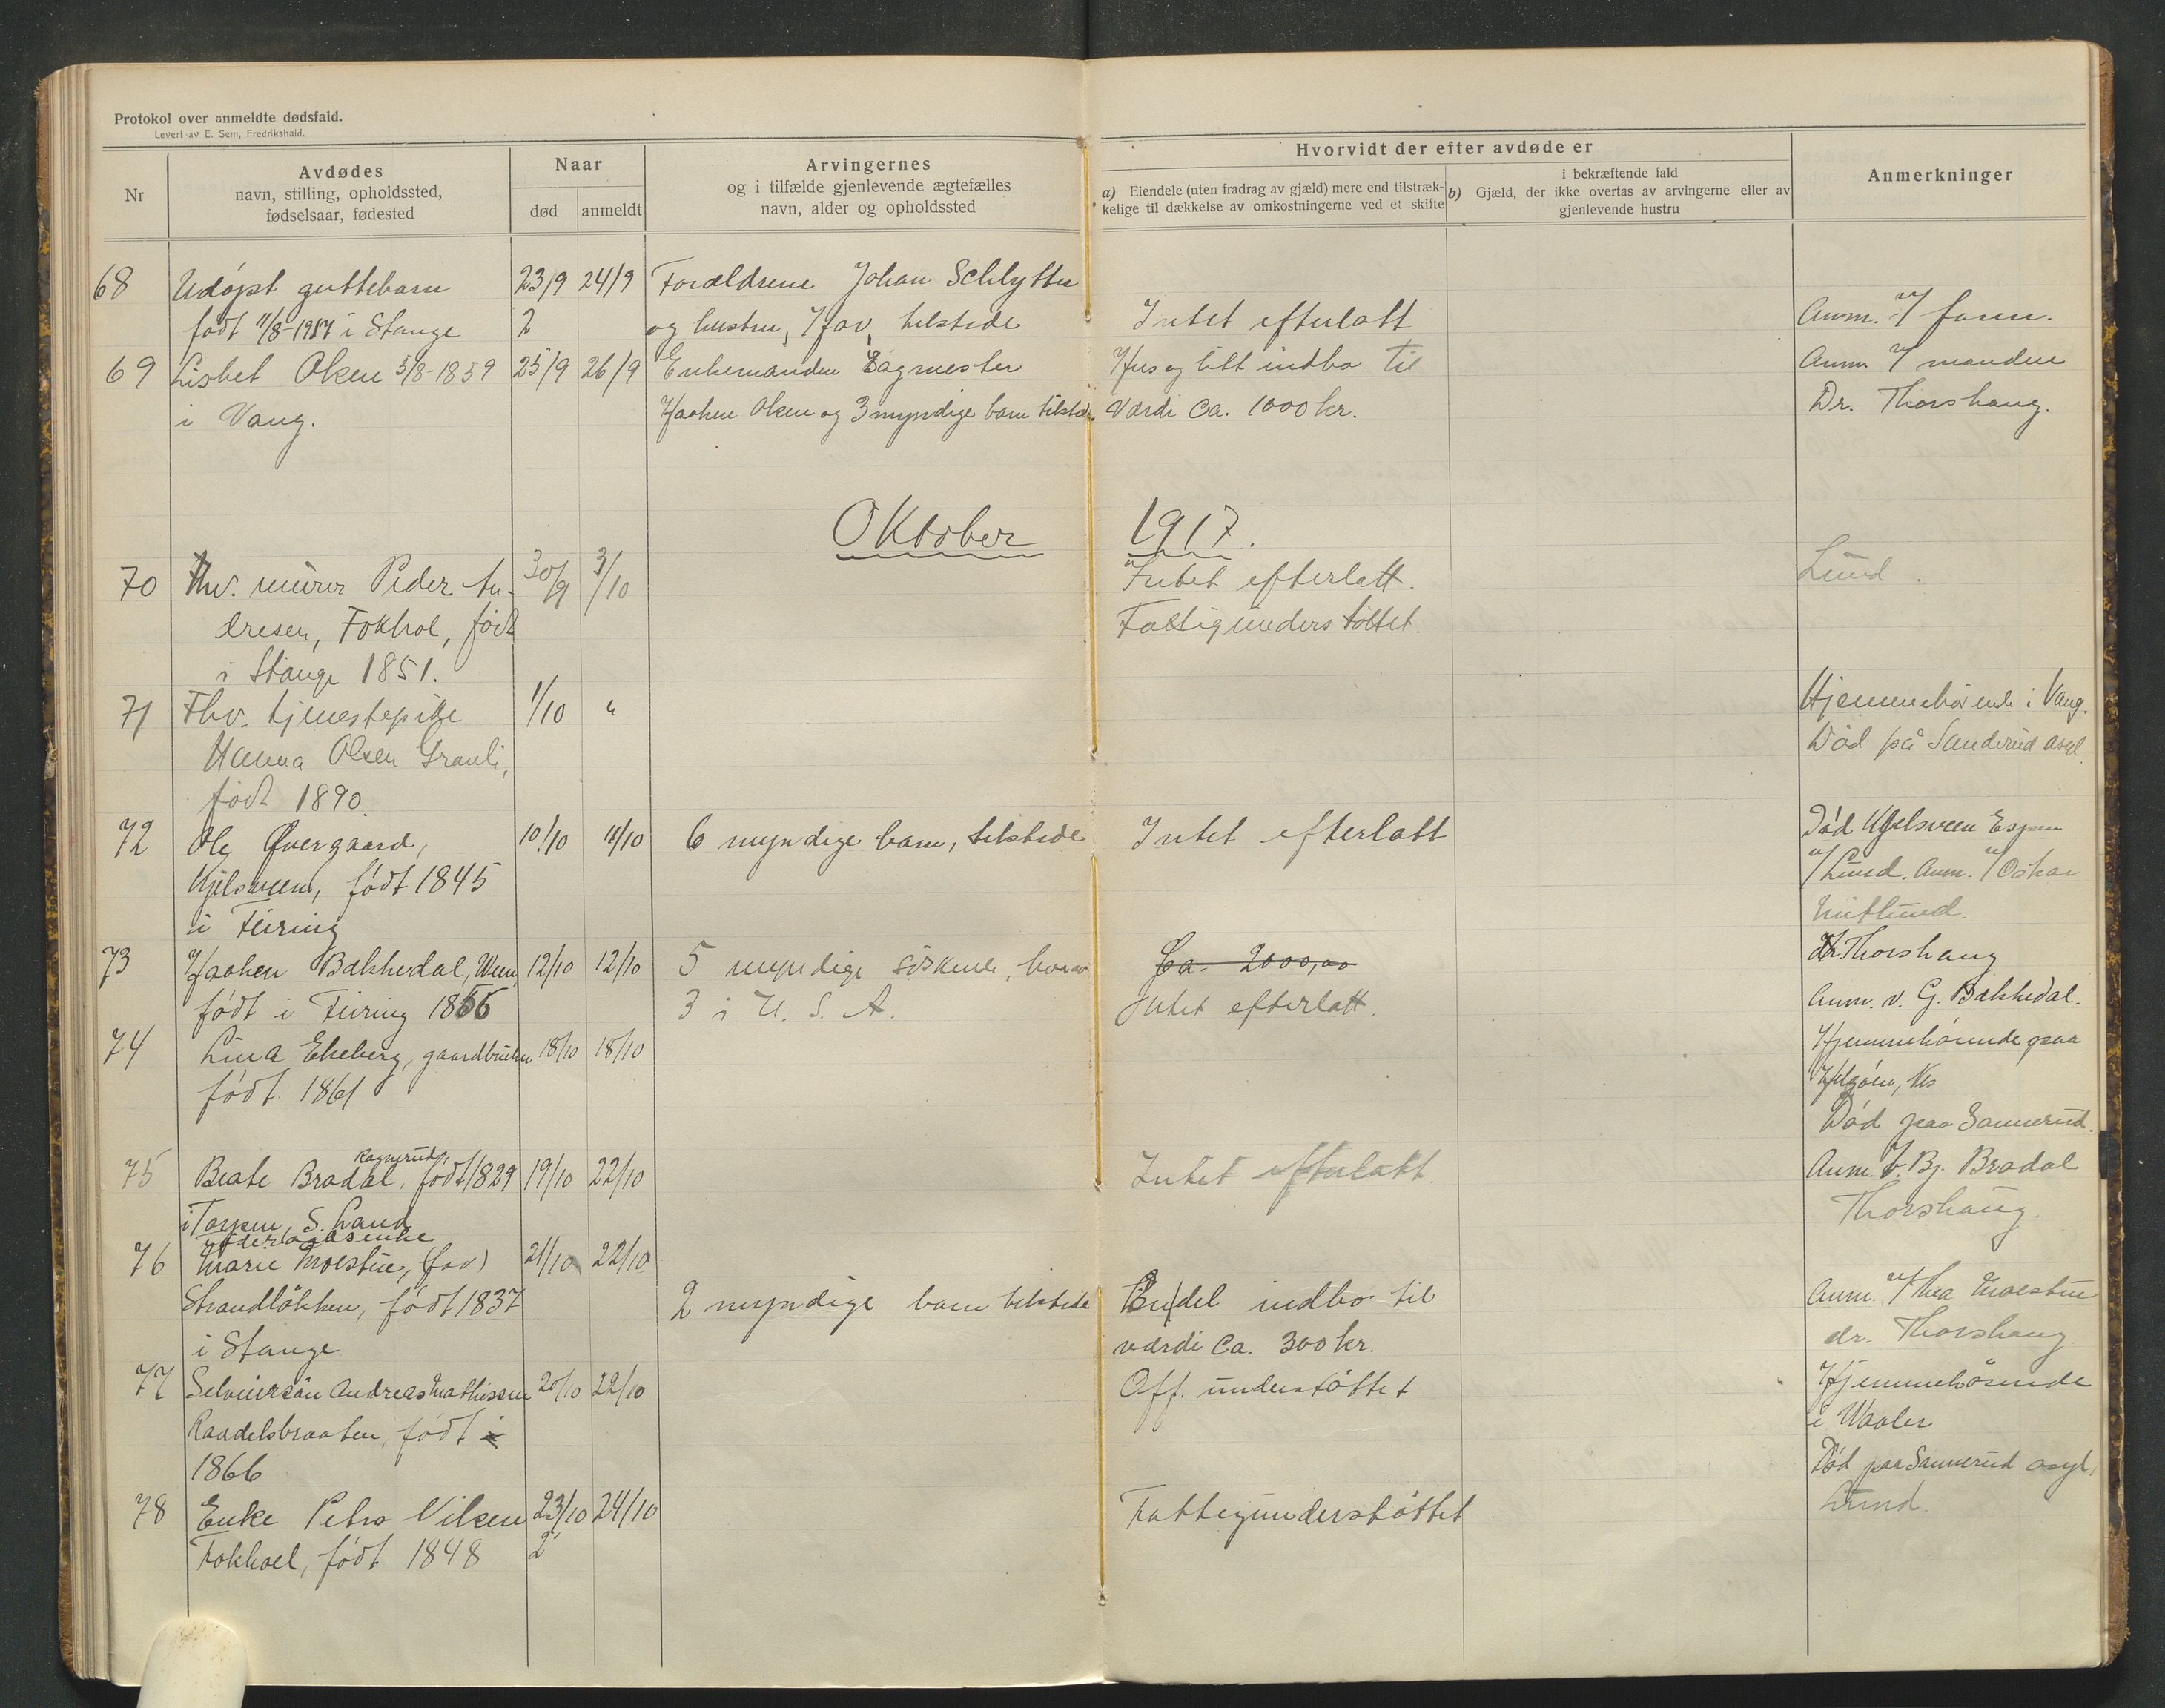 Protokol over anmeldte dødsfald.
Levert av E. Sem, Fredrikshald.
Nr
Avdødes
navn, stilling, opholdssted,
fødselsaar, fødested
Naar
død
anmeldt
Arvingernes
og i tilfælde gjenlevende ægtefælles
navn, alder og opholdssted
Hvorvidt der efter avdøde er
a) Eiendele (uten fradrag av gjæld) mere end tilstræk-
kelige til dækkelse av omkostningerne ved et skifte
i bekræftende fald
b) Gjæld, der ikke overtas av arvingerne eller av
gjenlevende hustru
Anmerkninger
68 Udøpt guttebarn 23/9 24/9 Forældrene Johan Schlytter
født 11/8-1917 i Stange 2 og hustru, tilstede Intet efterlatt Anm. v/ faren.
69 Lisbet Olsen 5/8-1859 25/9 26/9 Enkemanden Sagmester Hus og litt indbo til Anm v/ manden
i Vang. Haaken Olsen og 3 myndige barn tilstede værdi ca. 1000 kr. Dr. Thorshaug.
Oktober 1917.
70 Fhv. murer Peder An- 30/9 3/10 Intet efterlatt. Lund.
dresen, Fokhol, født Fattigunderstöttet.
i Stange 1851.
71 Fhv. tjenestepike 1/10 " Hjemmehörende i Vang.
Hanna Olsen Granli, Död på Sanderud asyl.
født 1890.
72 Ole Øvergaard, 10/10 11/10 6 myndige barn, tilstede Intet efterlatt Död Espen
født 1845 v/Lund. Anm. v/Oskar
i Feiring
73 Haaken Bakkedal, Ween, 12/10 12/10 5 myndige söskende, hvorav Ca. 2000,00 Dr Thorshaug
født i Feiring 1855 3 i U. S. A. Intet efterlatt. Anm. v. G. Bakkedal.
74 Lina Ekeberg, gaardbruker 18/10 18/10 Hjemmehörende paa
født 1861 Helgöen, Nes
Död paa Sannerud.
Ragnerud,
75 Beate Bradal, født 1829 19/10 22/10 Intet efterlatt. Anm. v. Bj. Bradal
i Torpen, S. Land Thorshaug.
76 Marie Moestue, (fav) 21/10 22/10
Strandlökken, født 1837 2 myndige barn tilstede Endel indbo til Anm. v/ Thea Moestue
i Stange værdi ca. 300 kr. dr. Thorshaug.
77 Selveiersön Andreas Mathissen 20/10 22/10 Off. understöttet Hjemmehörende
Raadelsbraaten, født i i Waaler
1866 Död paa Sannerud asyl.
78 Enke Petra Nilsen 23/10 24/10 Fattigunderstöttet Lund.
Fokhoel, født 1848 2